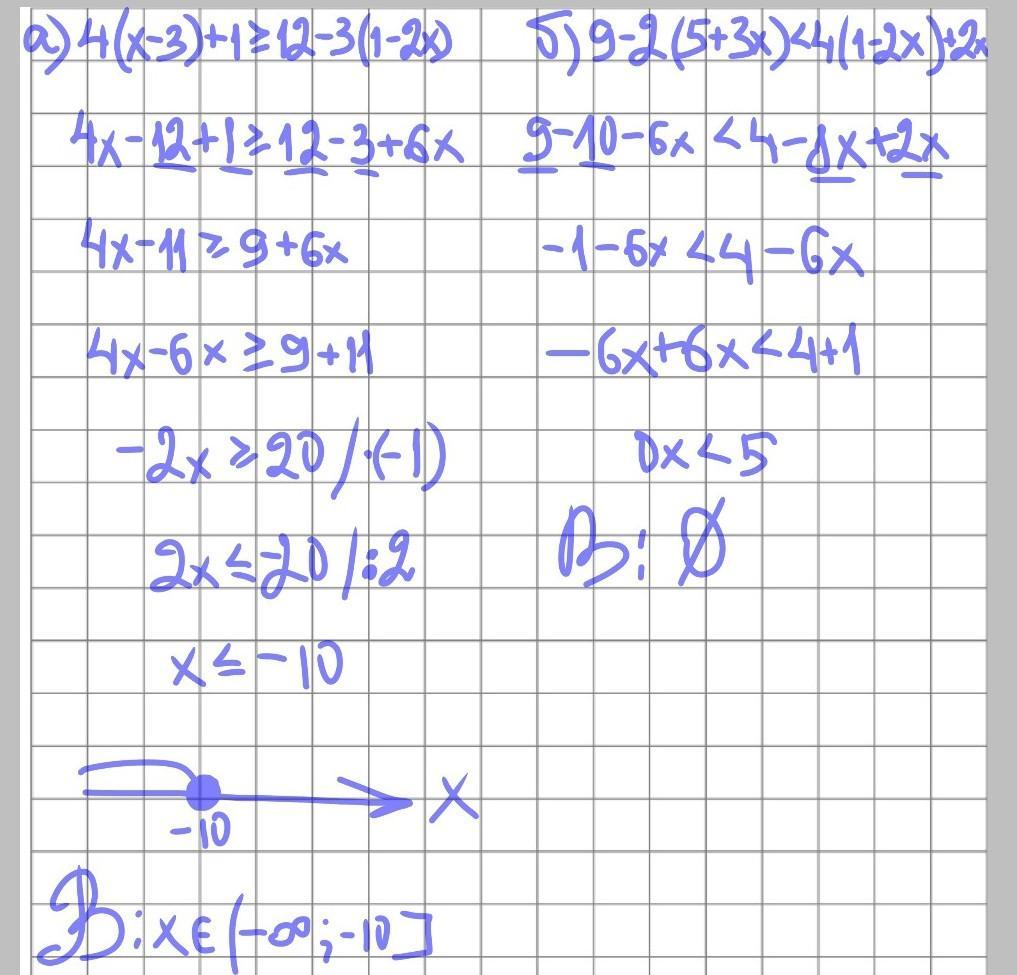 а) 4(x-3)+1≥12-3(1-2x)
4x-12+1≥12-3+6x
4x-11≥9+6x
4x-6x≥9+11
-2x≥20 /·(-1)
2x≤-20 /:2
x≤-10
-10 X
В: x∈(-∞;-10]
б) 9-2(5+3x)<4(1-2x)+2x
9-10-6x<4-8x+2x
-1-6x<4-6x
-6x+6x<4+1
0x<5
В: Ø